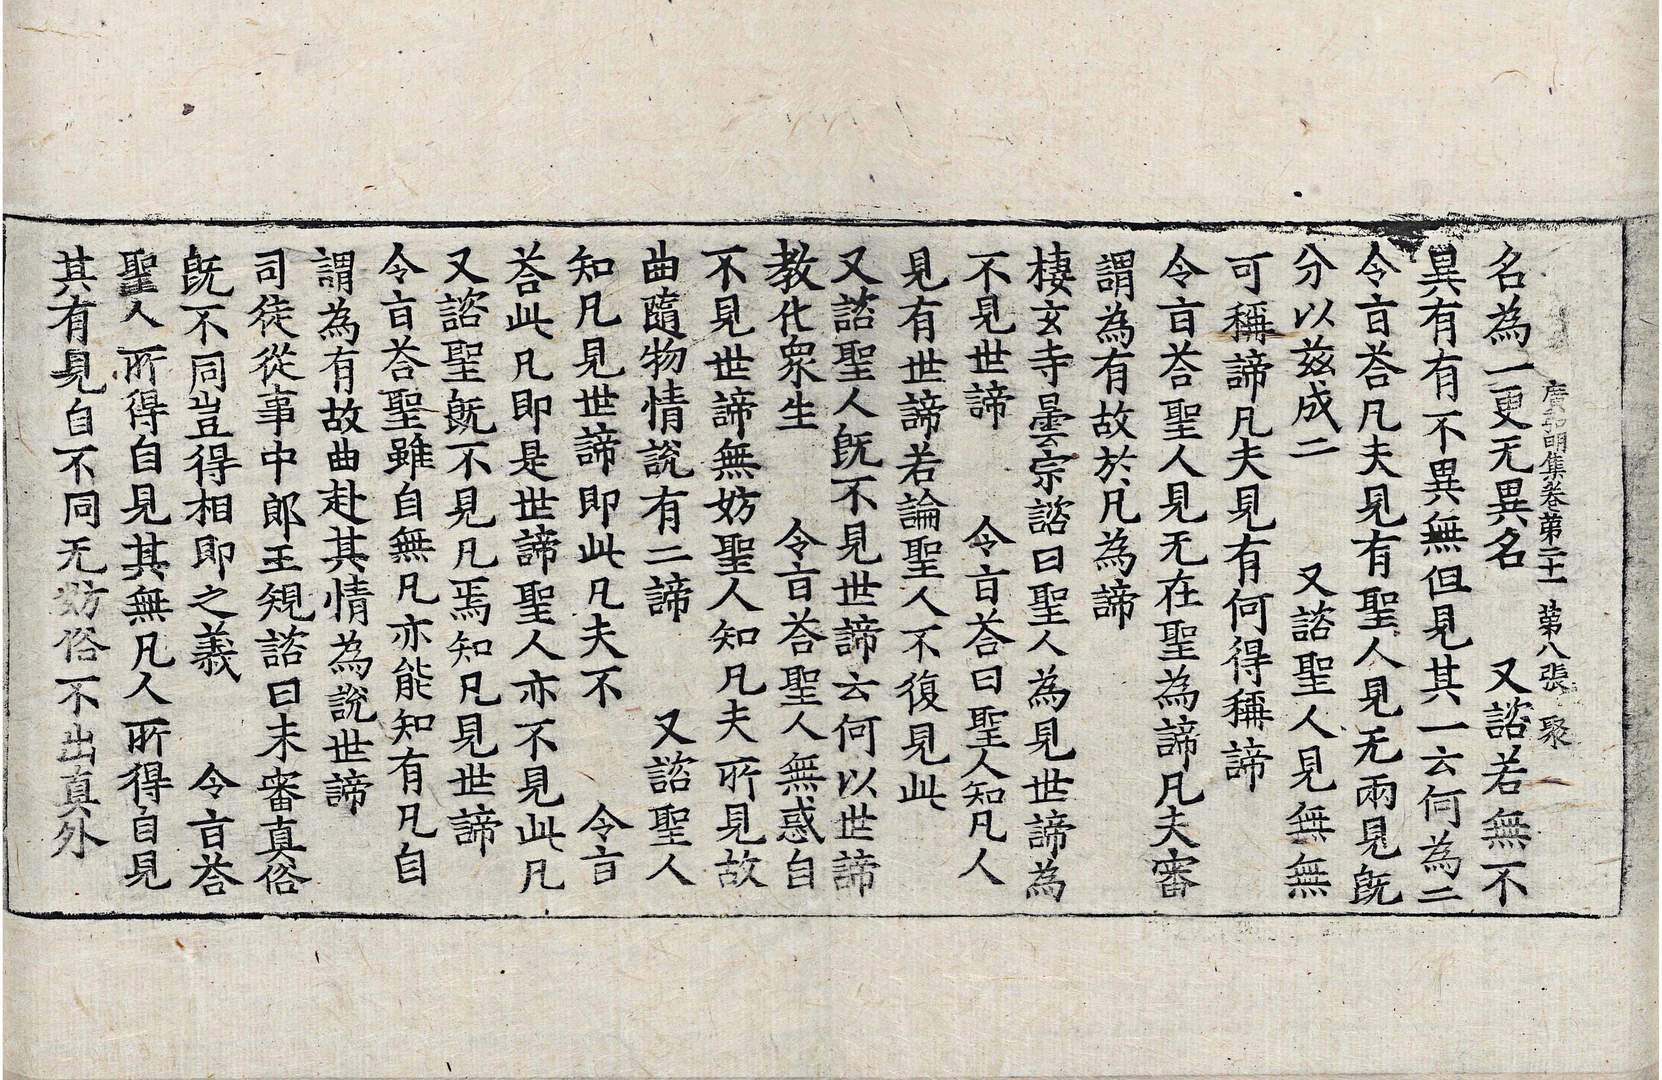 廣弘明集卷第二十一 第八張 聚
名為一更无異名 又諮若無不
異有有不異無但見其一云何為二
令旨荅凡夫見有聖人見无兩見旣
分以兹成二 又諮聖人見無無
可稱諦凡夫見有何得稱諦
令旨荅聖人見无在聖為諦凡夫審
謂為有故於凡為諦
棲玄寺曇宗諮曰聖人為見世諦為
不見世諦 令旨荅曰聖人知凡人
見有世諦若論聖人不復見此
又諮聖人旣不見世諦云何以世諦
教化衆生 令旨荅聖人無惑自
不見世諦無妨聖人知凡夫所見故
曲隨物情說有二諦 又諮聖人
知凡見世諦即此凡夫不 令旨
荅此凡即是世諦聖人亦不見此凡
又諮聖旣不見凡焉知凡見世諦
令旨荅聖雖自無凡亦能知有凡自
謂為有故曲赴其情為說世諦
司徒從事中郎王規諮曰未審真俗
旣不同豈得相即之義 令旨荅
聖人所得自見其無凡人所得自見
其有見自不同无妨俗不出真外